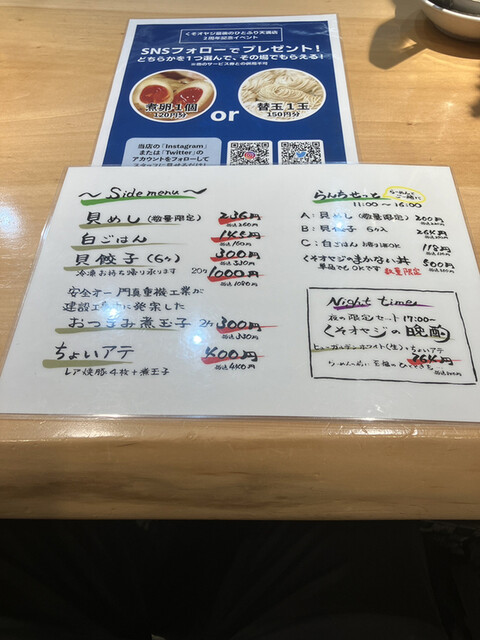 くそオヤジ最後のひとふり天満店
2周年記念イベント
SNSフォローでプレゼント！
どちらかを1つ選んで、その場でもらえる！
※他のサービス券との併用不可
煮卵1個
120円分
or
替玉1玉
150円分
当店の「Instagram」
または「Twitter」の
アカウントをフォローして
〜 Side menu 〜
貝めし (数量限定) 236円
税込260円
白ごはん 145円
税込160円
貝餃子 (6ヶ) 300円
税込330円
冷凍お持ち帰り承ります 20ヶ 1000円
税込1080円
安全オー門真重機工業が
建設工事中に発案した
おつまみ煮玉子 2ヶ 300円
税込330円
ちょいアテ 400円
税込440円
レア焼豚4枚+煮玉子
らんちせっと
11:00 〜 16:00
A：貝めし (数量限定) 200円
B：貝餃子 6ヶ入 264円
C：白ごはん お持ち帰りOK 118円
くそオヤジのまかない丼 500円
単品でもOKです 数量限定
Night time
夜の限定セット 17:00〜
くそオヤジの晩酌
ヒューガルデンホワイト(生)+ちょいアテ